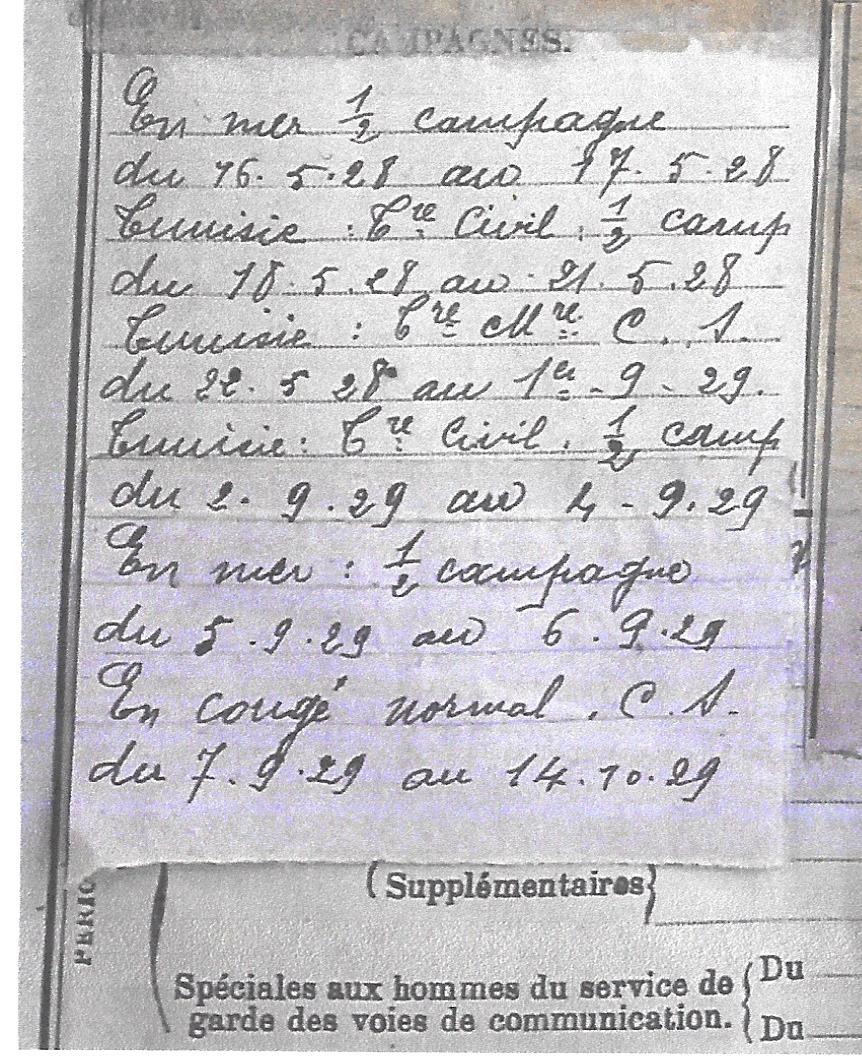 CAMPAGNES.
En mer 1/2 campagne
du 16. 5.28 au 17. 5.28
Tunisie : Tre Civil : 1/2 camp
du 18. 5.28 au 21. 5.28
Tunisie : Tre Mre C. S.
du 22. 5 28 au 1er - 9 - 29.
Tunisie : Tre Civil . 1/2 camp
du 2. 9.29 au 4 - 9.29
En mer : 1/2 campagne
du 5.9.29 au 6.9.29
En congé normal . C. S.
du 7.9.29 au 14.10.29
(Supplémentaires
PERIO
Spéciales aux hommes du service de
garde des voies de communication.
Du
Du